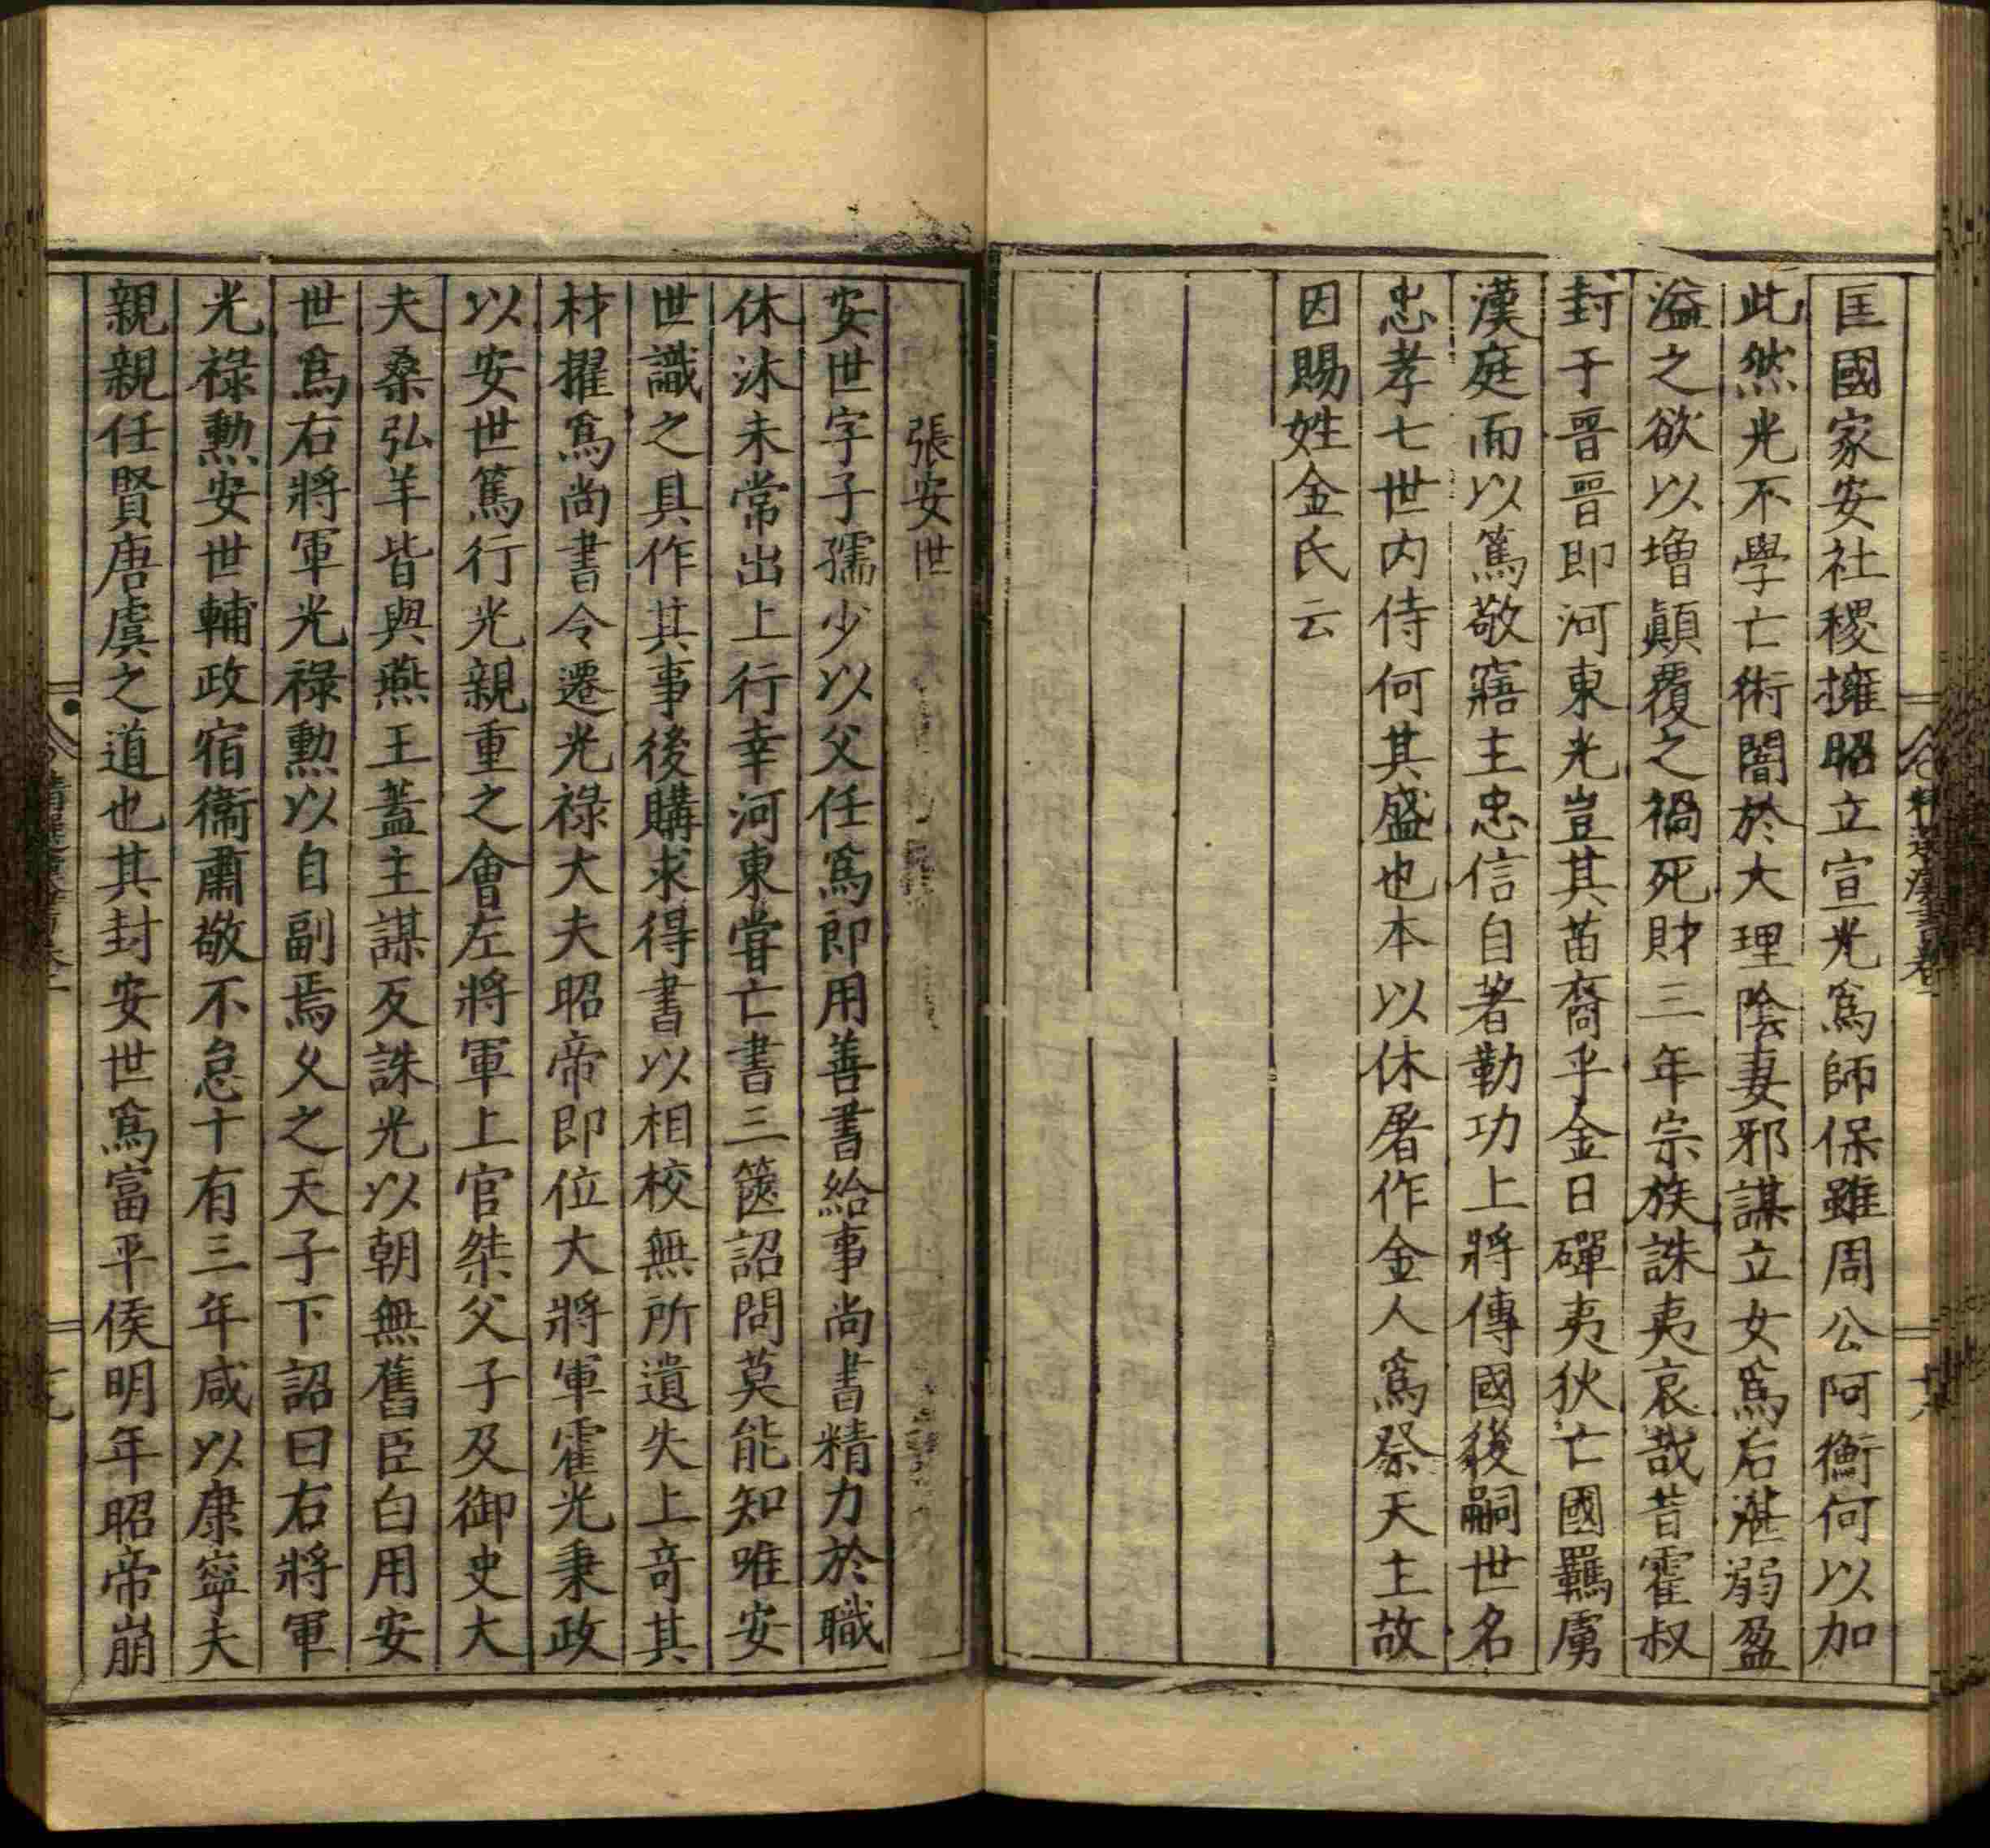 匡國家安社稷擁昭立宣光爲師保雖周公阿衡何以加
此然光不學亡術闇於大理陰妻邪謀立女爲后湛溺盈
溢之欲以增顛覆之禍死財三年宗族誅夷哀哉昔霍叔
封于晉晉即河東光豈其苗裔乎金日磾夷狄亡國羈虜
漢庭而以篤敬寤主忠信自著勒功上將傳國後嗣世名
忠孝七世内侍何其盛也本以休屠作金人爲祭天主故
因賜姓金氏云
張安世
安世字子孺少以父任爲郎用善書給事尚書精力於職
休沐未常出上行幸河東嘗亡書三篋詔問莫能知唯安
世識之具作其事後購求得書以相校無所遺失上奇其
材擢爲尚書令遷光祿大夫昭帝即位大將軍霍光秉政
以安世篤行光親重之會左將軍上官桀父子及御史大
夫桑弘羊皆與燕王蓋主謀反誅光以朝無舊臣白用安
世爲右將軍光祿勲以自副焉乆之天子下詔曰右將軍
光祿勲安世輔政宿衞肅敬不怠十有三年咸以康寧夫
親親任賢唐虞之道也其封安世爲富平侯明年昭帝崩